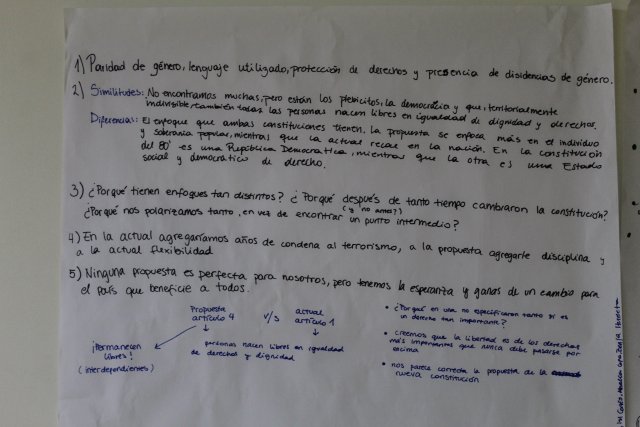 1) Paridad de género, lenguaje utilizado, protección de derechos y presencia de disidencias de género.
2) Similitudes: No encontramos muchas, pero están los plebicitos, la democracia y que, territorialmente
indivisible, también todas las personas nacen libres en igualdad de dignidad y derechos.
Diferencias: El enfoque que ambas constituciones tienen, la propuesta se enfoca más en el individuo
y soberanía popular, mientras que la actual recae en la nación. En la constitución
del 80' es una República Democrática, mientras que la otra es una Estado
social y democrático de derecho.
3) ¿Porqué tienen enfoques tan distintos? ¿Porqué después de tanto tiempo cambiaron la constitución?
(y no antes?)
¿Porqué nos polarizamos tanto, en vez de encontrar un punto intermedio?
4) En la actual agregaríamos años de condena al terrorismo, a la propuesta agregarle disciplina y
a la actual flexibilidad
5) Ninguna propuesta es perfecta para nosotros, pero tenemos la esperanza y ganas de un cambio para
el país que beneficie a todos.
Propuesta artículo 4 v/s actual artículo 1
¡Permanecen libres!
(interdependientes)
personas nacen libres en igualdad
de derechos y dignidad
• ¿Porqué en una no especificaron tanto si es
un derecho tan importante?
• creemos que la libertad es de los derechos
más importantes que nunca debe pasarse por
encima
• nos parece correcta la propuesta de la
nueva constitución